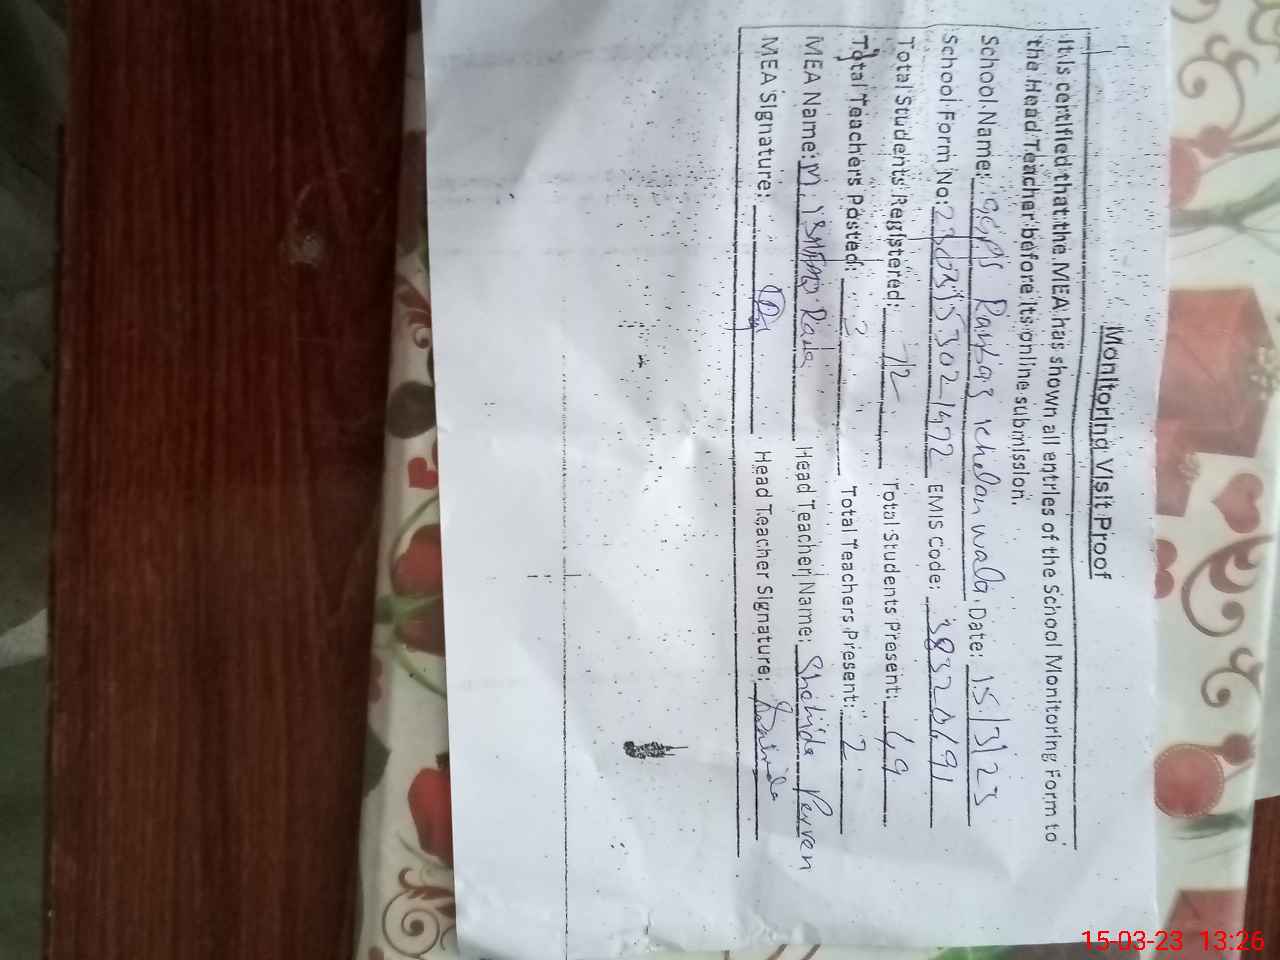 Monitoring Visit Proof
It is certified that the MEA has shown all entries of the School Monitoring Form to
the Head Teacher before its online submission.
School Name: GGPS Ranbag Khelan wala Date: 15/3/23
School Form No: EMIS Code:
Total Students Registered: 72 Total Students Present: 49
Total Teachers Posted: 2 Total Teachers Present: 2
MEA Name: M. Head Teacher Name: Shahida Perven
MEA Signature: Head Teacher Signature: Shahida
15-03-23 13:26